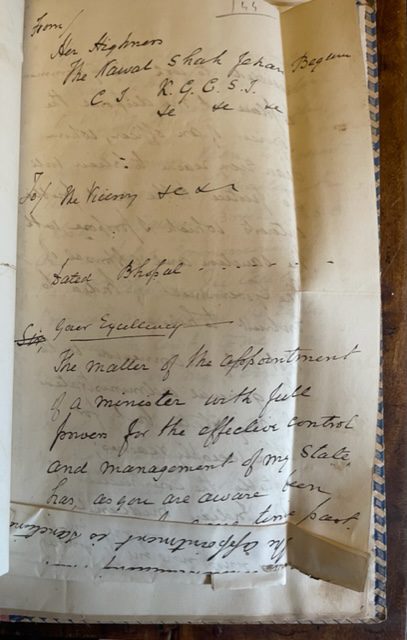 144
From/
Her Highness
The Nawab Shah Jehan Begum
C. I. K. G. C. S. I.
&c &c &c
To/ The Viceroy &c &c
Dated Bhopal
Sir, Your Excellency
The matter of the appointment
of a minister with full
powers for the effective control
and management of my State,
has, as you are aware been
time past
the appointment is sanctioned